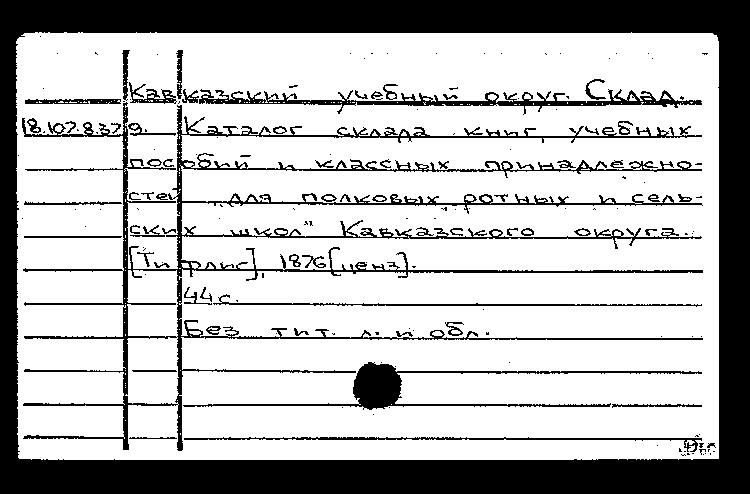 Кавказский учебный округ. Склад.
18.107.8.379. Каталог склада книг, учебных
пособий и классных принадлежно-
стей „для полковых ротных и сель-
ских школ" Кавказского округа.
[Тифлис], 1876 [ценз].
44 с.
Без тит. л. и обл.